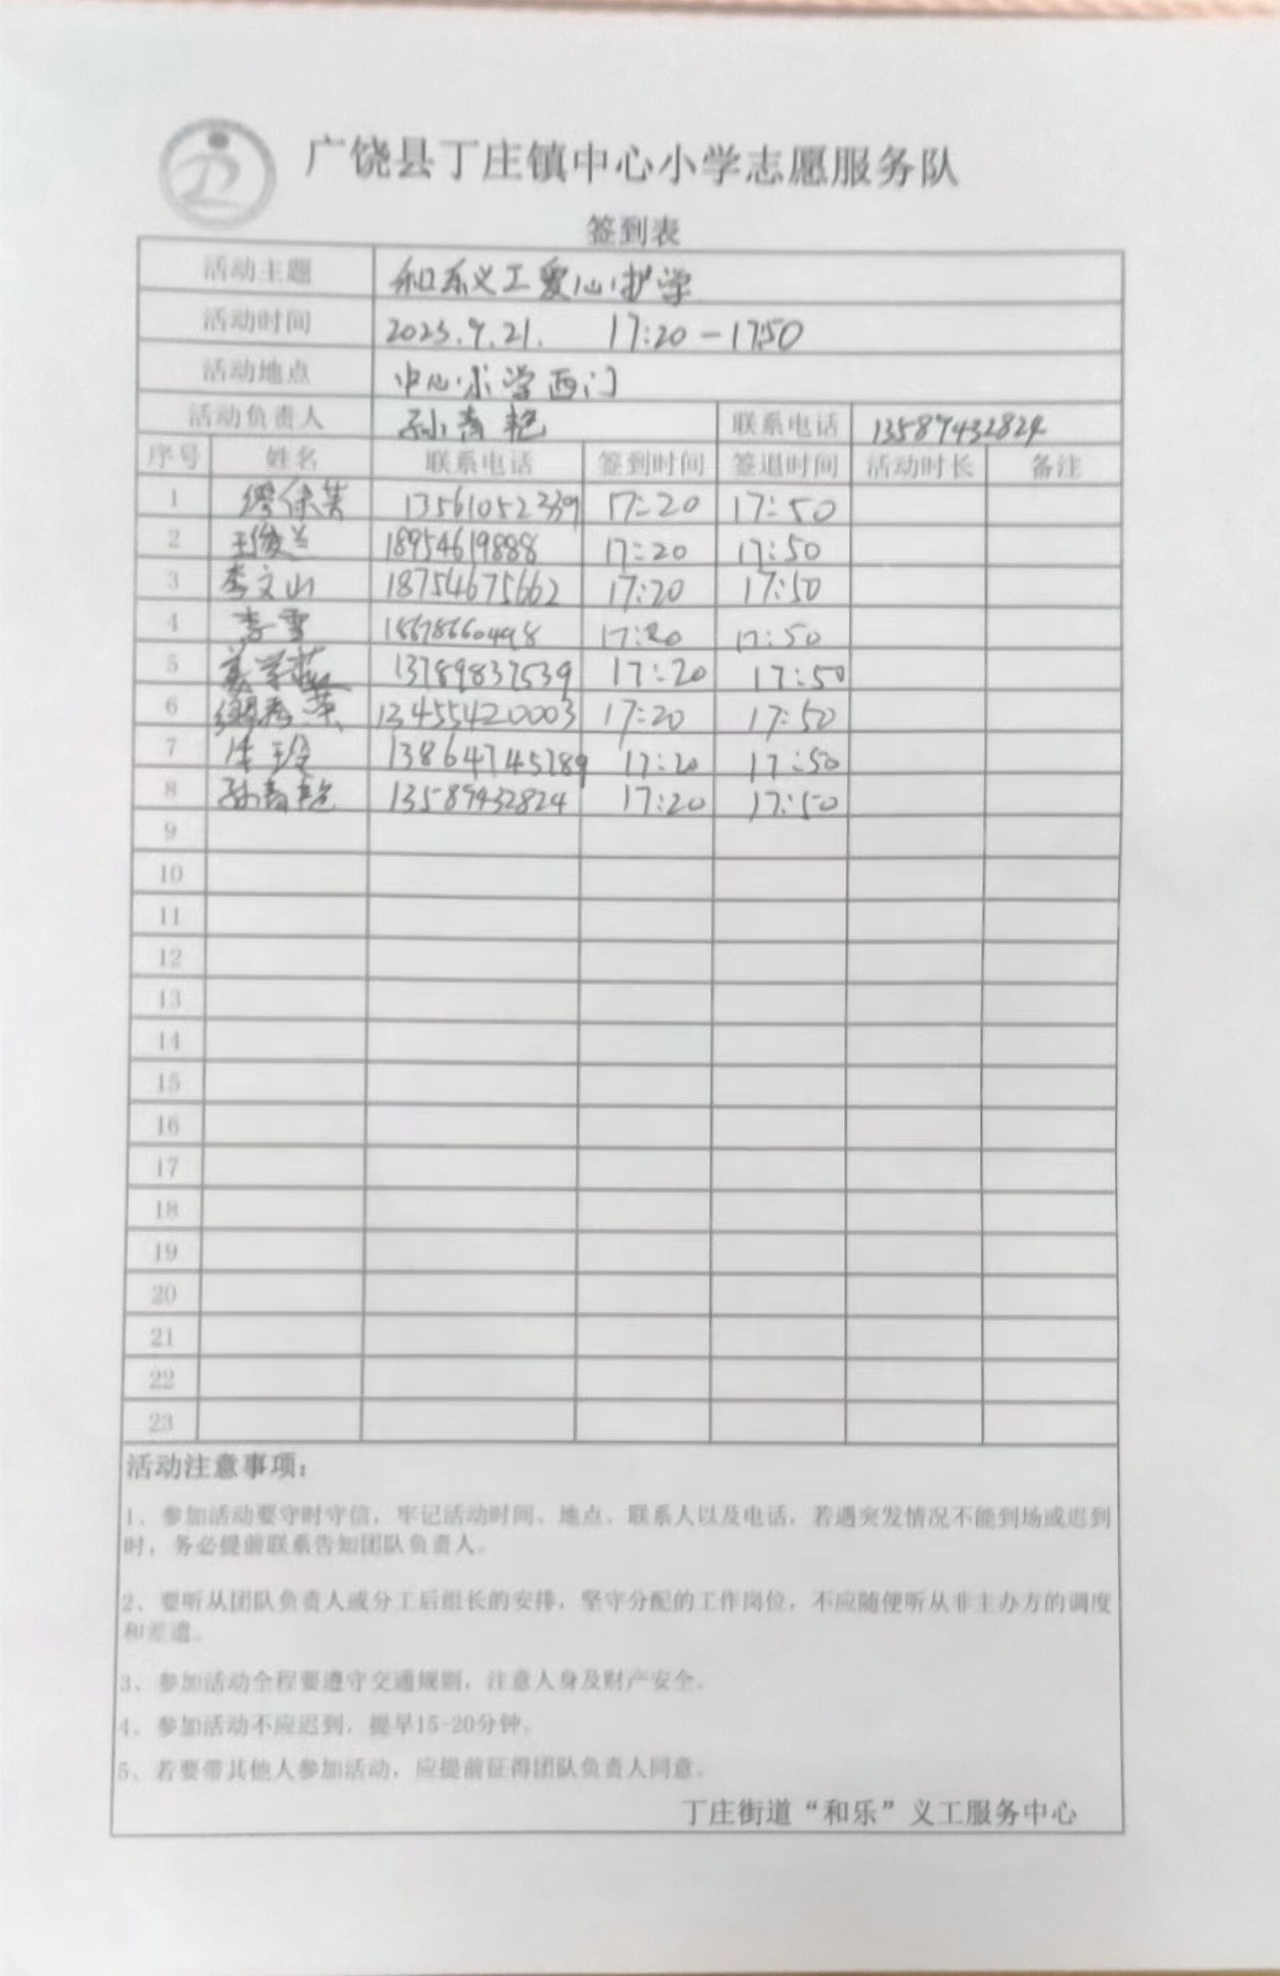 广饶县丁庄镇中心小学志愿服务队
签到表
活动主题 和乐义工爱心护学
活动时间 2023.9.21. 17:20-17:50
活动地点 中心小学西门
活动负责人 孙青艳 联系电话 13589432824
序号 姓名 联系电话 签到时间 签退时间 活动时长 备注
1 13561052339 17:20 17:50
2 王俊兰 18954619888 17:20 17:50
3 李文山 18754675662 17:20 17:50
4 李雪 18678660498 17:20 17:50
5 13789837539 17:20 17:50
6 13455420003 17:20 17:50
7 13864745789 17:20 17:50
8 孙青艳 13589432824 17:20 17:50
9
10
11
12
13
14
15
16
17
18
19
20
21
22
23
活动注意事项：
1、参加活动要守时守信，牢记活动时间、地点、联系人以及电话，若遇突发情况不能到场或迟到
时，务必提前联系告知团队负责人。
2、要听从团队负责人或分工后组长的安排，坚守分配的工作岗位，不应随便听从非主办方的调度
和差遣。
3、参加活动全程要遵守交通规则，注意人身及财产安全。
4、参加活动不应迟到，提早15-20分钟。
5、若要带其他人参加活动，应提前征得团队负责人同意。
丁庄街道“和乐”义工服务中心